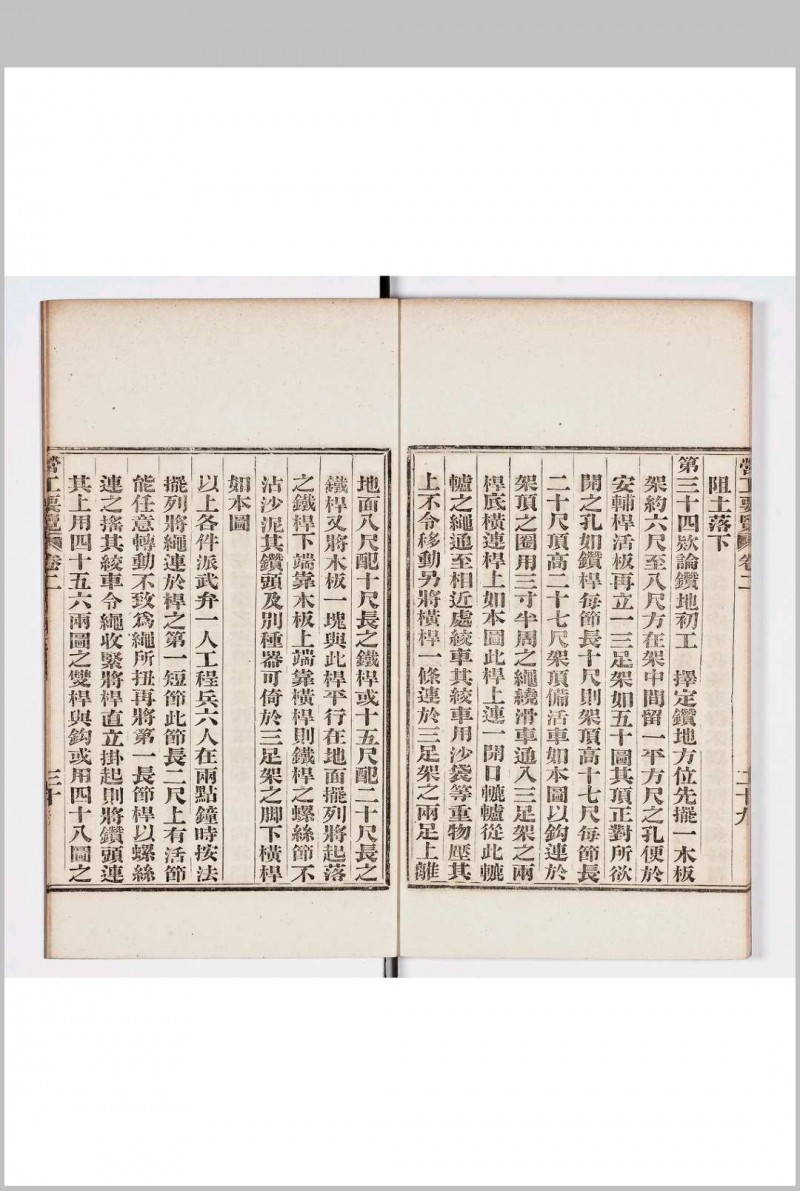 營工要覽 卷二 二十九
阻土落下
第三十四欵論鑽地初工　擇定鑽地方位先擺一木板
架約六尺至八尺方在架中間留一平方尺之孔便於
安輔桿活板再立一三足架如五十圖其頂正對所欲
開之孔如鑽桿每節長十尺則架頂高十七尺每節長
二十尺頂高二十七尺架頂備活車如本圖以鈎連於
架頂之圈用三寸半周之繩繞滑車通入三足架之兩
桿底橫連桿上如本圖此桿上連一開口轆轤從此轆
轤之繩通至相近處絞車其絞車用沙袋等重物壓其
上不令移動另將橫桿一條連於三足架之兩足上離
地面八尺配十尺長之鐵桿或十五尺配二十尺長之
鐵桿又將木板一塊與此桿平行在地面擺列將起落
之鐵桿下端靠木板上端靠橫桿則鐵桿之螺絲節不
沾沙泥其鑽頭及別種器可倚於三足架之脚下橫桿
如本圖
以上各件派武弁一人工程兵六人在兩點鐘時按法
擺列將繩連於桿之第一短節此節長二尺上有活節
能任意轉動不致爲繩所扭再將第一長節桿以螺絲
連之搖其絞車令繩收緊將桿直立掛起則將鑽頭連
其上用四十五六兩圖之雙桿與鈎或用四十八圖之
營工要覽 卷二 三十